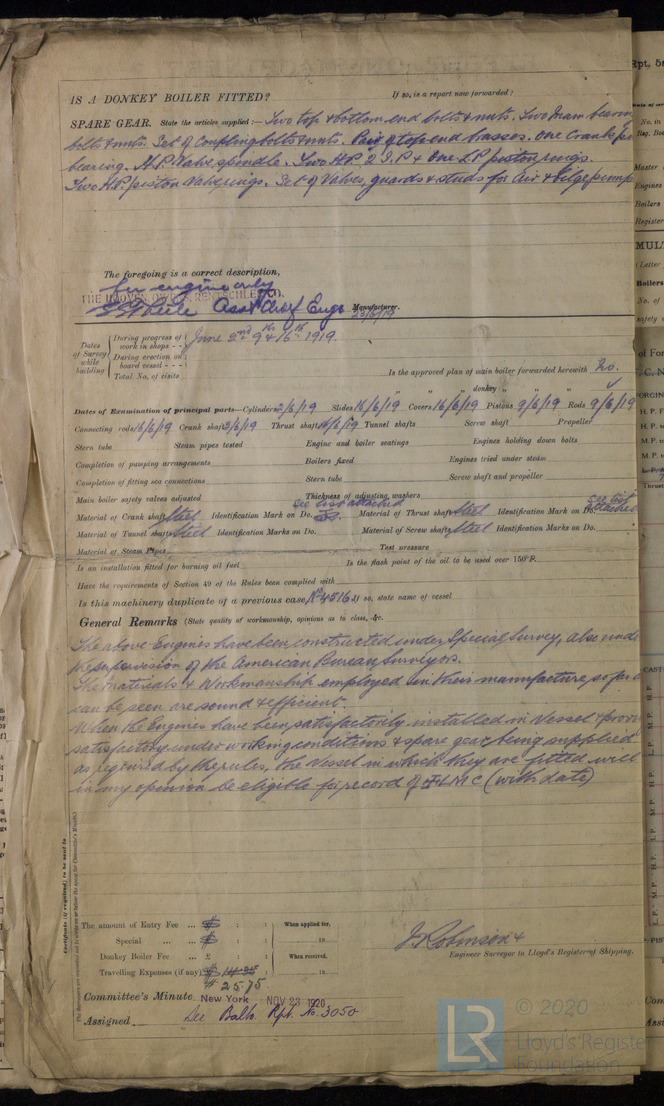 IS A DONKEY BOILER FITTED? If so, is a report now forwarded?
SPARE GEAR. State the articles supplied:— Two top & bottom end bolts & nuts. Two Main bearing
bolts & nuts. Set of Coupling bolts & nuts. Pair of top end brasses. One Crank pin
bearing. H.P. Valve spindle. Two H.P. 2 I.P. & One L.P. piston rings.
Two H.P. piston Valve rings. Set of Valves, guards & studs for Air & Bilge pump
The foregoing is a correct description,
for engine only
THE HOOVEN, OWENS, RENTSCHLER CO.
Asst Chief Engr Manufacturer.
23/6/19
Dates of Survey while building
During progress of work in shops - - June 2nd 9th & 16th 1919.
During erection on board vessel - - -
Total No. of visits
Is the approved plan of main boiler forwarded herewith No.
" " donkey " " "
Dates of Examination of principal parts—Cylinders 2/6/19 Slides 16/6/19 Covers 16/6/19 Pistons 9/6/19 Rods 9/6/19
Connecting rods 16/6/19 Crank shaft 2/6/19 Thrust shaft 16/6/19 Tunnel shafts Screw shaft Propeller
Stern tube Steam pipes tested Engine and boiler seatings Engines holding down bolts
Completion of pumping arrangements Boilers fixed Engines tried under steam
Completion of fitting sea connections Stern tube Screw shaft and propeller
Main boiler safety valves adjusted Thickness of adjusting washers
Material of Crank shaft Steel Identification Mark on Do. see list attached Material of Thrust shaft Steel Identification Mark on Do. see list attached
Material of Tunnel shafts Steel Identification Marks on Do. Material of Screw shafts Steel Identification Marks on Do.
Material of Steam Pipes Test pressure
Is an installation fitted for burning oil fuel Is the flash point of the oil to be used over 150°F.
Have the requirements of Section 49 of the Rules been complied with
Is this machinery duplicate of a previous case No 4516 If so, state name of vessel
General Remarks (State quality of workmanship, opinions as to class, &c.
The above Engines have been constructed under Special Survey, also under
the supervision of the American Bureau Surveyors.
The Materials & Workmanship employed in their manufacture so far as
can be seen are sound & efficient.
When the Engines have been satisfactorily installed in Vessel & proven
satisfactory under working conditions & spare gear being supplied
as required by the rules, the Vessel in which they are fitted will
in my opinion be eligible for record of + LMC (with date)
Certificate (if required) to be sent to
The amount of Entry Fee ... $ : : When applied for,
Special ... $ : : 19
Donkey Boiler Fee ... £ : : When received,
Travelling Expenses (if any) $ 14.25 : 19
$ 25.75
J Robinson
Engineer Surveyor to Lloyd's Register of Shipping.
Committee's Minute New York NOV 23 1920
Assigned See Balt. Rpt. No. 3050
© 2020
LR
Lloyd's Register
Foundation
Rpt. 5